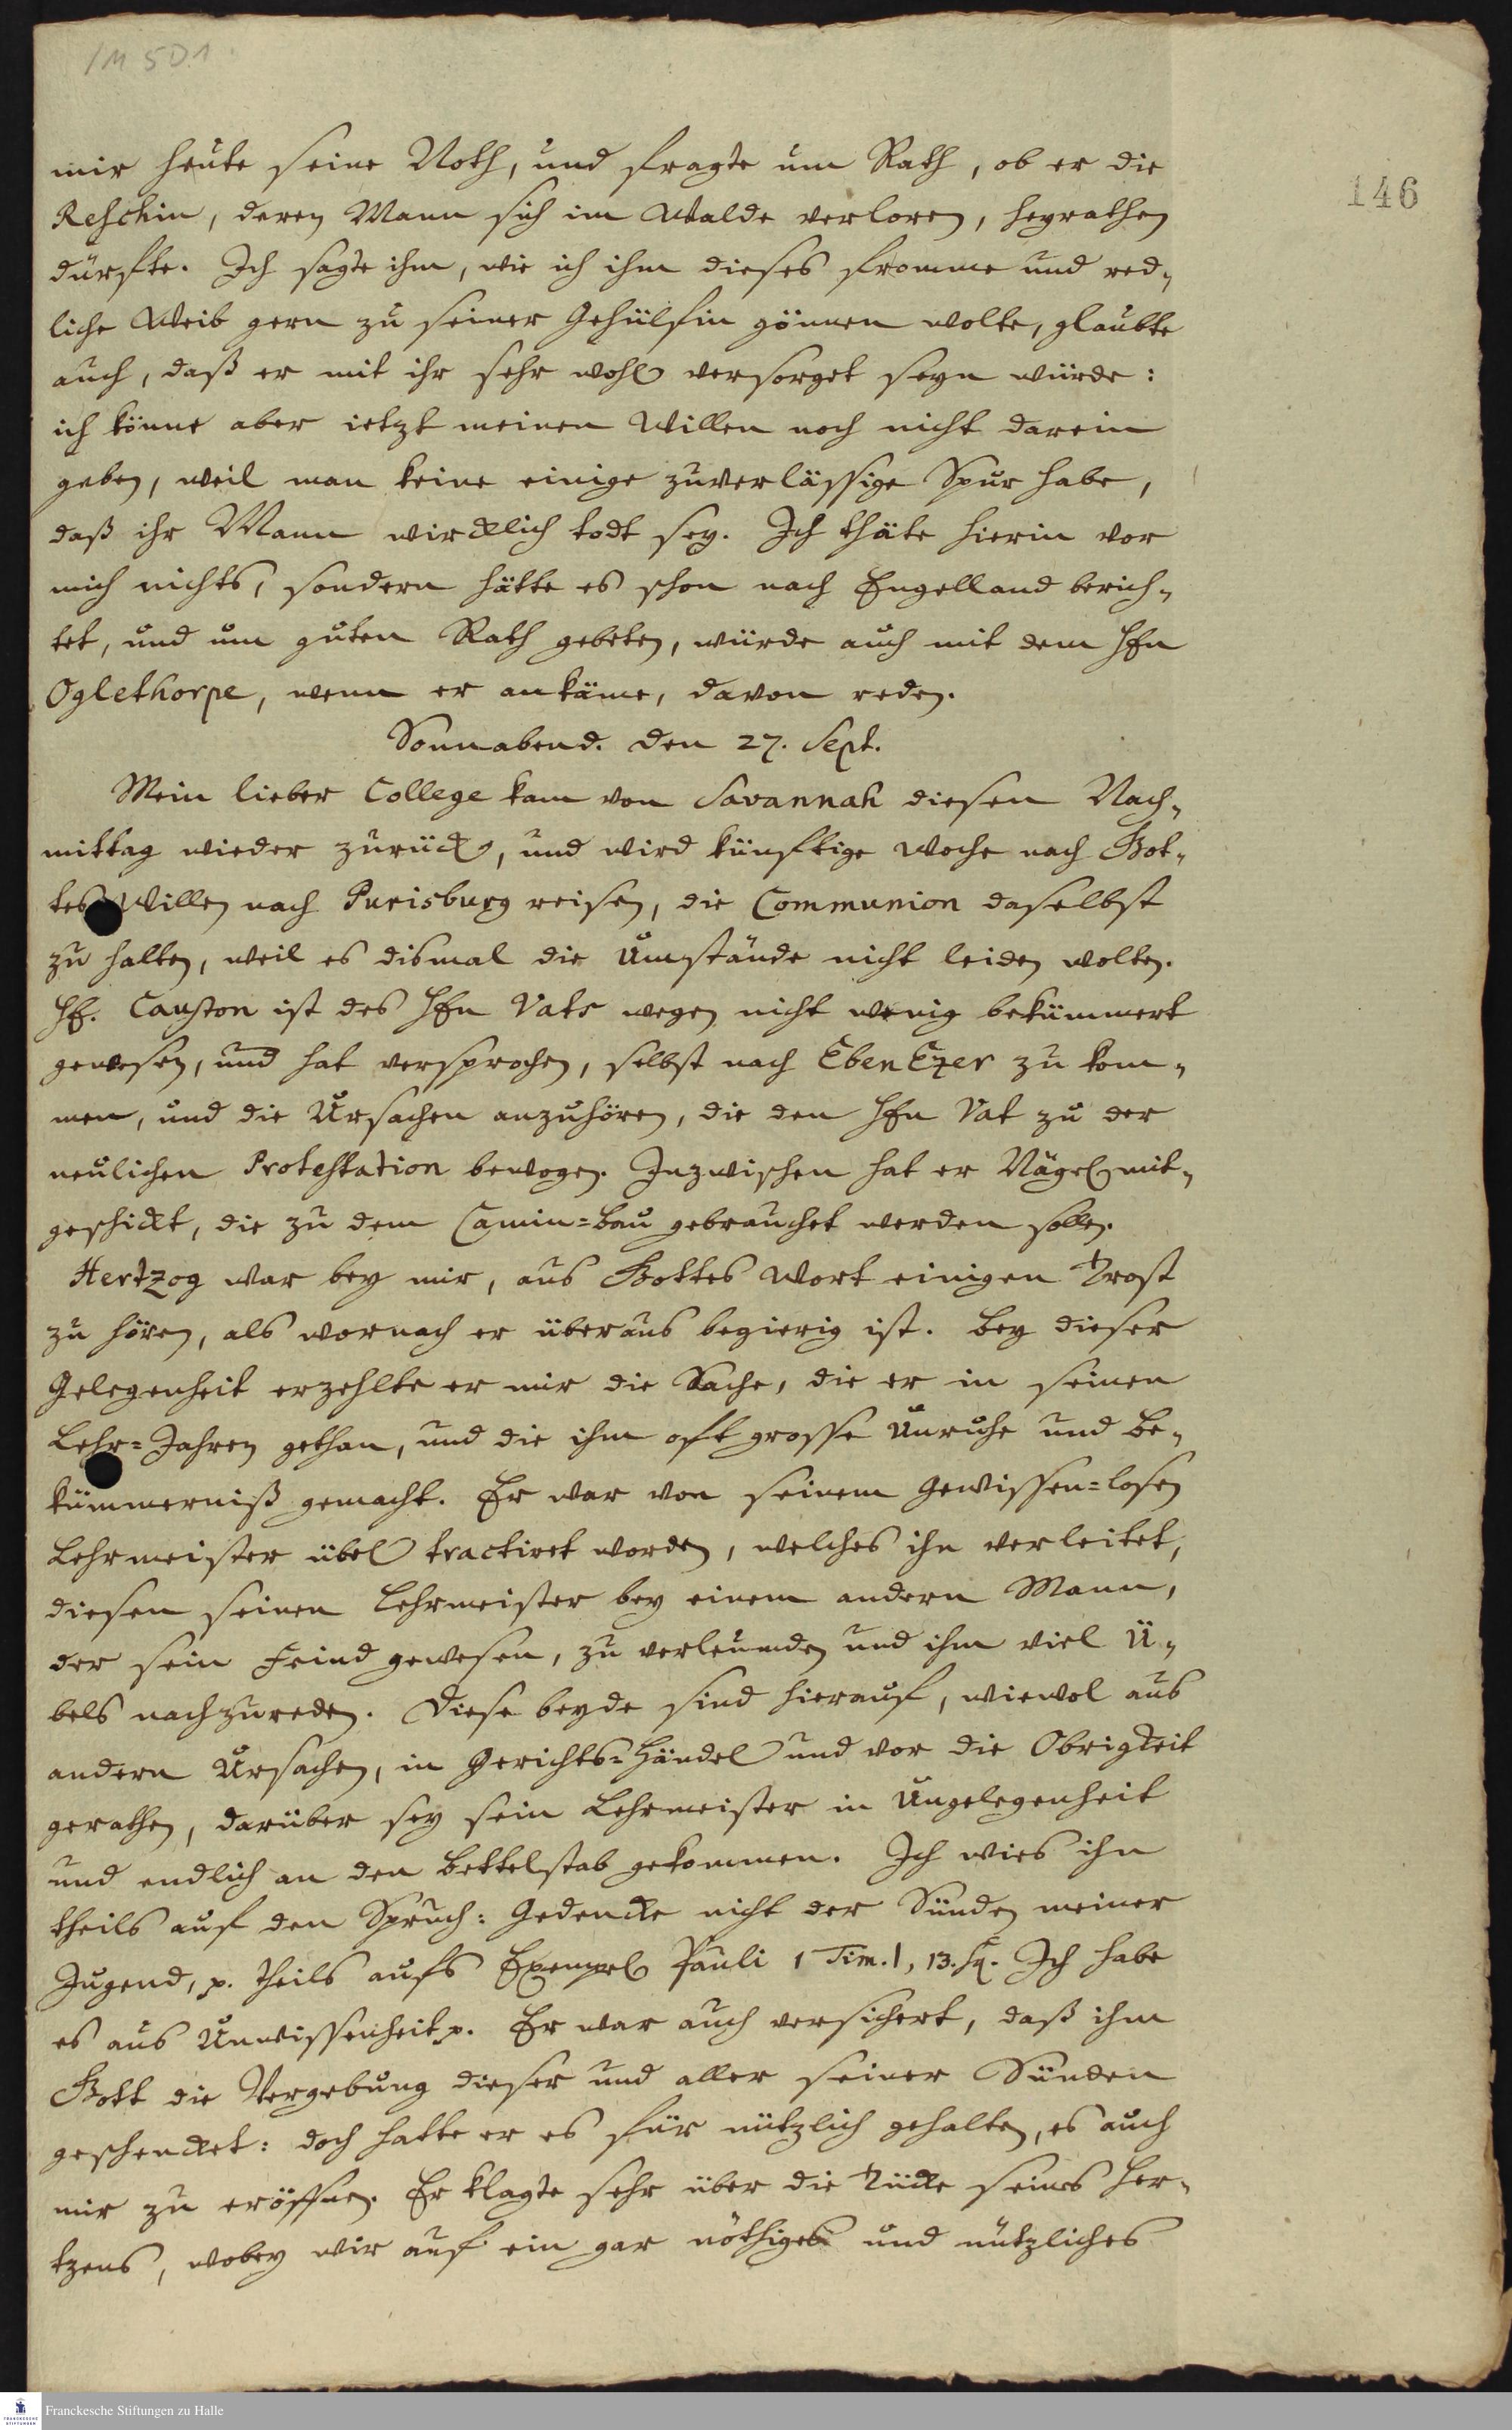 /M 5D1
146
mir heute seine Noth, und fragte um Rath, ob er die
Reschin, deren Mann sich im Walde verloren, heyrathen
dürfte. Ich sagte ihm, wie ich ihm dieses fromme und red-
liche Weib gern zu seiner Gehülfin gönnen wolte, glaubte
auch, daß er mit ihr sehr wohl versorget seyn würde:
ich könne aber ietzt meinen Willen noch nicht darein
geben, weil man keine einige zuverlässige Spur habe,
daß ihr Mann wircklich todt sey. Ich thäte hierin vor
mich nichts, sondern hätte es schon nach Engelland berich-
tet, und um guten Rath gebeten, würde auch mit dem Hℓn
Oglethorpe, wenn er ankäme, davon reden.
Sonnabend. den 27. Sept.
Mein lieber College kam von Savannah diesen Nach-
mittag wieder zurück, und wird künftige Woche nach Got-
tes Willen nach Purisburg reisen, die Communion daselbst
zu halten, weil es dismal die Umstände nicht leiden wolten.
Hℓ. Causton ist des Hℓn Vats wegen nicht wenig bekümmert
gewesen, und hat versprochen, selbst nach EbenEzer zu kom-
men, und die Ursachen anzuhören, die den Hℓn Vat zu der
neulichen Protestation bewogen. Inzwischen hat er Nägel mit-
geschickt, die zu dem Camin=bau gebrauchet werden sollen.
Hertzog war bey mir, aus Gottes Wort einigen Trost
zu hören, als wornach er überaus begierig ist. Bey dieser
Gelegenheit erzehlte er mir die Sache, die er in seinen
Lehr=Jahren gethan, und die ihm oft grosse Unruhe und Be-
kümmerniß gemacht. Er war von seinem Gewissen=losen
Lehrmeister übel tractiret worden, welches ihn verleitet,
diesen seinen Lehrmeister bey einem andern Mann,
der sein Feind gewesen, zu verleumden und ihm viel Ü-
bels nachzureden. Diese beyde sind hierauf, wiewol aus
andern Ursachen, in Gerichts=Händel und vor die Obrigkeit
gerathen, darüber sey sein Lehrmeister in Ungelegenheit
und endlich an den Bettelstab gekommen. Ich wies ihn
theils auf den Spruch: Gedencke nicht der Sünden meiner
Jugend, p. theils aufs Exempel Pauli 1 Tim. 1, 13. sq. Ich habe
es aus Unwissenheit p. Er war auch versichert, daß ihm
Gott die Vergebung dieser und aller seiner Sünden
geschencket: doch hatte er es für nützlich gehalten, es auch
mir zu eröffnen. Er klagte sehr über die Tücke seines Her-
tzens, wobey wir auf ein gar nöthiges und nützliches
Franckesche Stiftungen zu Halle
FRANCKESCHE
STIFTUNGEN